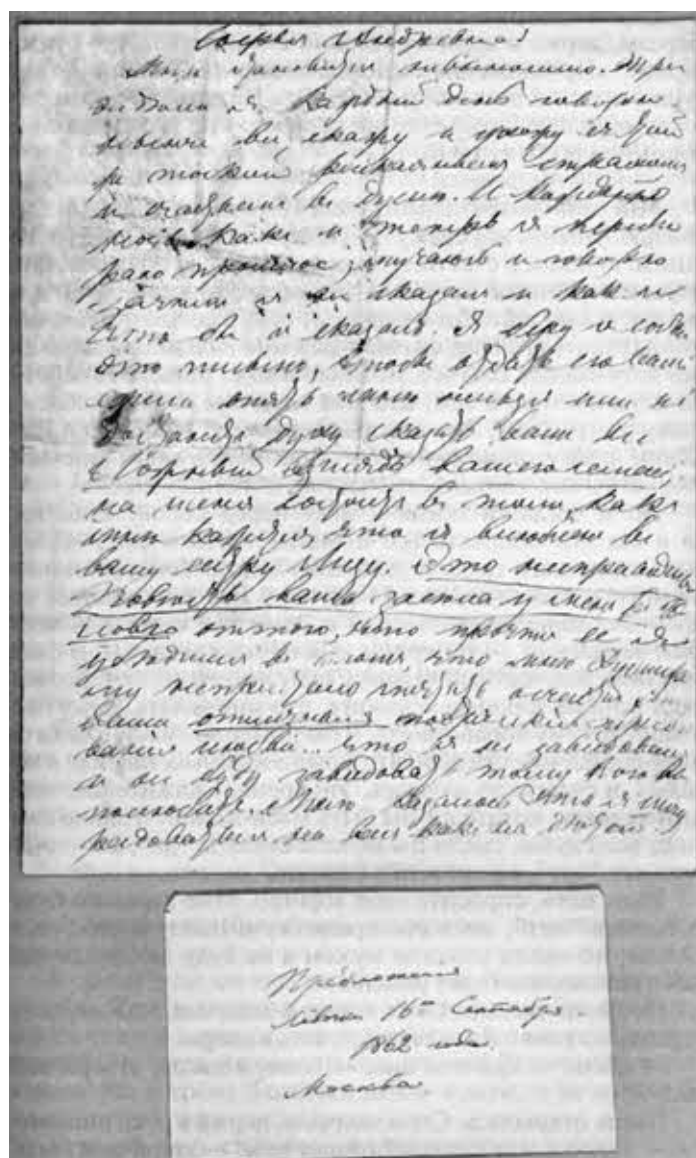 Софья Андреевна!
Мне становится невыносимо. Три
недели я каждый день говорю
нынче все скажу и ухожу с той
же тоской раскаянием страхом
и счастьем в душе. И каждую
ночь, как и теперь я переби
раю прошлое, мучаюсь и говорю
зачем я не сказал и как и
что бы я сказал. Я беру с собою
это письмо, чтобы отдать его вам
ежели опять мне нельзя или не
достанет духу сказать вам все
Ложный взгляд вашего семейства
на меня состоит в том, как
мне кажется, что я влюблен в
вашу сестру Лизу. Это несправедливо
Повесть ваша засела у меня в го
лове оттого, что прочтя ее я
убедился в том, что мне Дублицко
му не пристало мечтать о счастьи, что
ваши отличные поэтические требо
вания любви.. что я не завидовал
и не буду завидовать тому кого вы
полюбите. Мне казалось что я могу
радоваться на вас как на детей.
Предложение
Левочки 16го Сентября
1862 года.
Москва